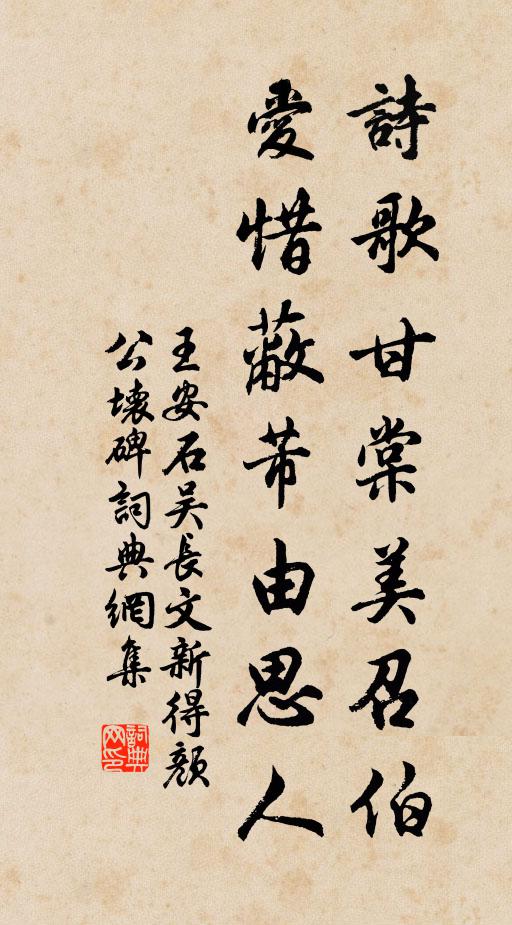 詩歌甘棠美召伯
愛惜蔽芾由思人
王安石吴長文新得顏
公壞碑詞典網集
詞典网印